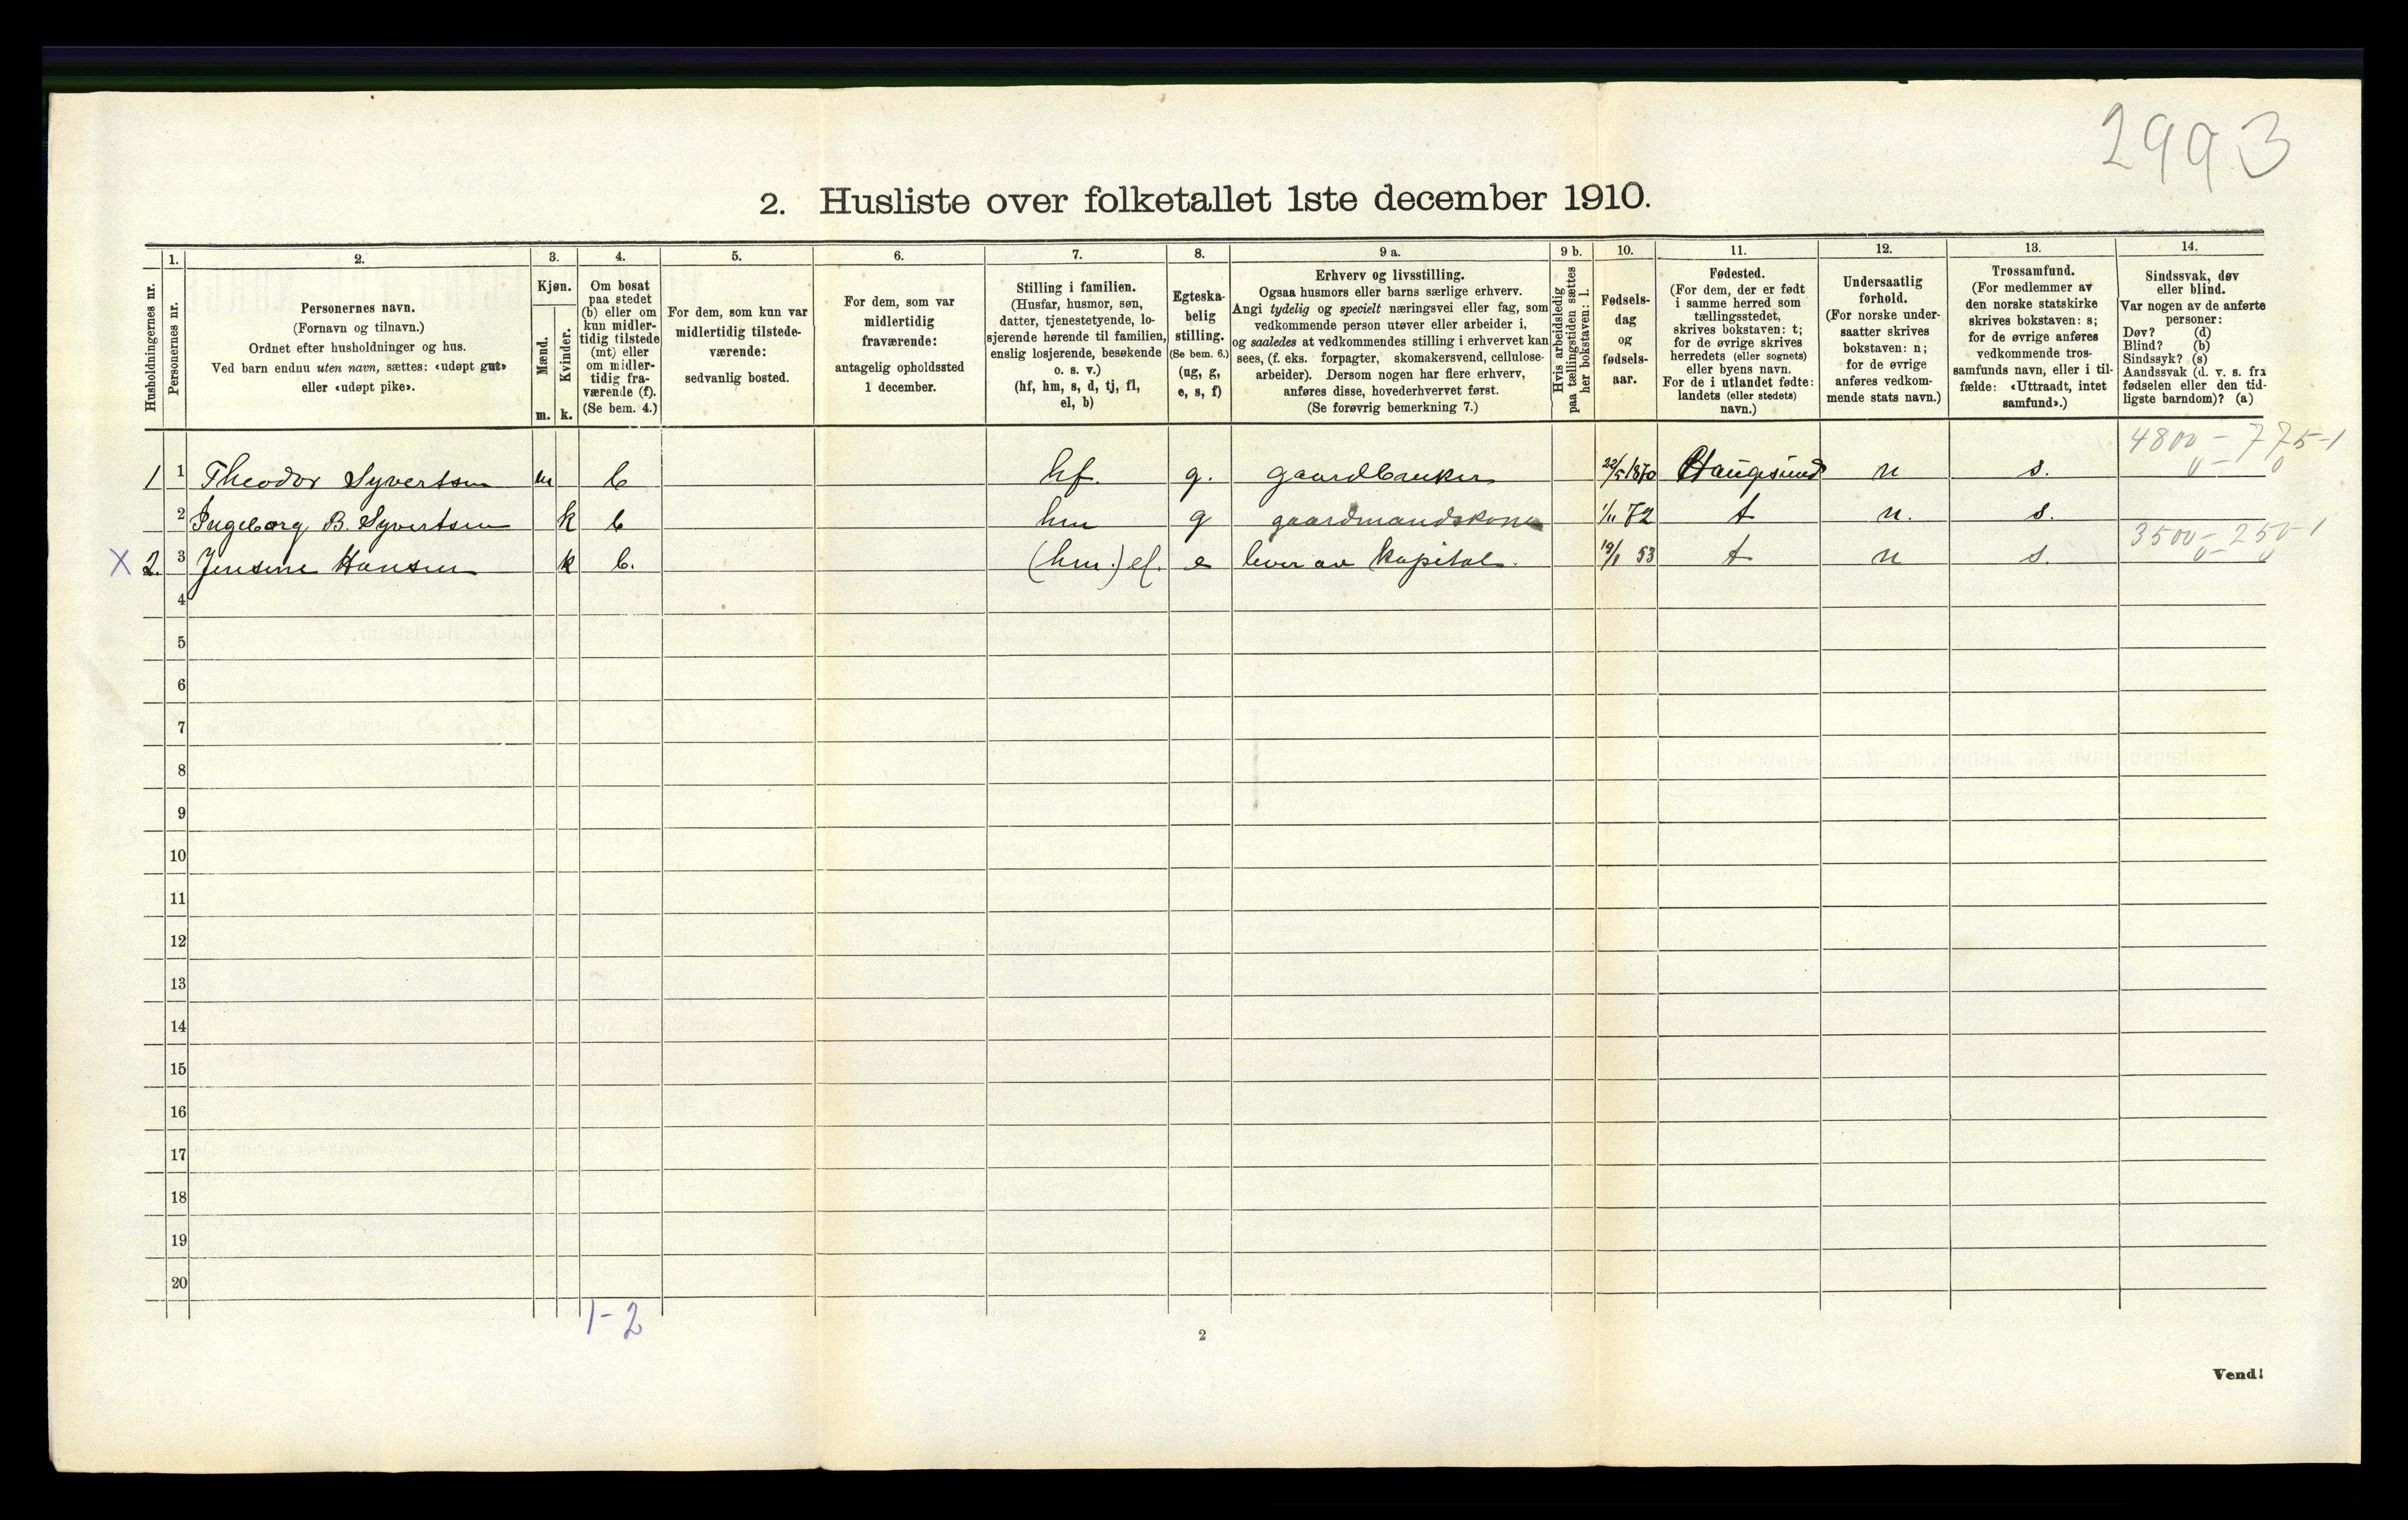 2993
2. Husliste over folketallet 1ste december 1910.
Husholdningernes nr.
1.
Personernes nr.
2.
Personernes navn.
(Fornavn og tilnavn.)
Ordnet efter husholdninger og hus.
Ved barn endnu uten navn, sættes: «udøpt gut»
eller «udøpt pike».
3.
Kjøn.
Mænd.
Kvinder.
m. k.
4.
Om bosat
paa stedet
(b) eller om
kun midler-
tidig tilstede
(mt) eller
om midler-
tidig fra-
værende (f).
(Se bem. 4.)
5.
For dem, som kun var
midlertidig tilstede-
værende:
sedvanlig bosted.
6.
For dem, som var
midlertidig
fraværende:
antagelig opholdssted
1 december.
7.
Stilling i familien.
(Husfar, husmor, søn,
datter, tjenestetyende, lo-
sjerende hørende til familien,
enslig losjerende, besøkende
o. s. v.)
(hf, hm, s, d, tj, fl,
el, b)
8.
Egteska-
belig
stilling.
(Se bem. 6.)
(ug, g,
e, s, f)
9 a.
Erhverv og livsstilling.
Ogsaa husmors eller barns særlige erhverv.
Angi tydelig og specielt næringsvei eller fag, som
vedkommende person utøver eller arbeider i,
og saaledes at vedkommendes stilling i erhvervet kan
sees, (f. eks. forpagter, skomakersvend, cellulose-
arbeider). Dersom nogen har flere erhverv,
anføres disse, hovederhvervet først.
(Se forøvrig bemerkning 7.)
9 b.
Hvis arbeidsledig
paa tællingstiden sættes
her bokstaven: l.
10.
Fødsels-
dag
og
fødsels-
aar.
11.
Fødested.
(For dem, der er født
i samme herred som
tællingsstedet,
skrives bokstaven: t;
for de øvrige skrives
herredets (eller sognets)
eller byens navn.
For de i utlandet fødte:
landets (eller stedets)
navn.)
12.
Undersaatlig
forhold.
(For norske under-
saatter skrives
bokstaven: n;
for de øvrige
anføres vedkom-
mende stats navn.)
13.
Trossamfund.
(For medlemmer av
den norske statskirke
skrives bokstaven: s;
for de øvrige anføres
vedkommende tros-
samfunds navn, eller i til-
fælde: «Uttraadt, intet
samfund».)
14.
Sindssvak, døv
eller blind.
Var nogen av de anførte
personer:
Døv? (d)
Blind? (b)
Sindssyk? (s)
Aandssvak (d. v. s. fra
fødselen eller den tid-
ligste barndom)? (a)
4800 - 775-1
0 - 0
1 1 Theodor Syvertsen m b hf. g. gaardbruker 22/5 1870 Haugesund n s.
2 Ingeborg B. Syvertsen k b hm g gaardmandskone 1/11 72 t n. s.
3500 - 250-1
0 - 0
X 2. 3 Jensine Hansen k b. (hm.) el. e lever av kapital. 53 t n s.
4
5
6
7
8
9
10
11
12
13
14
15
16
17
18
19
20
1-2
2
Vend!